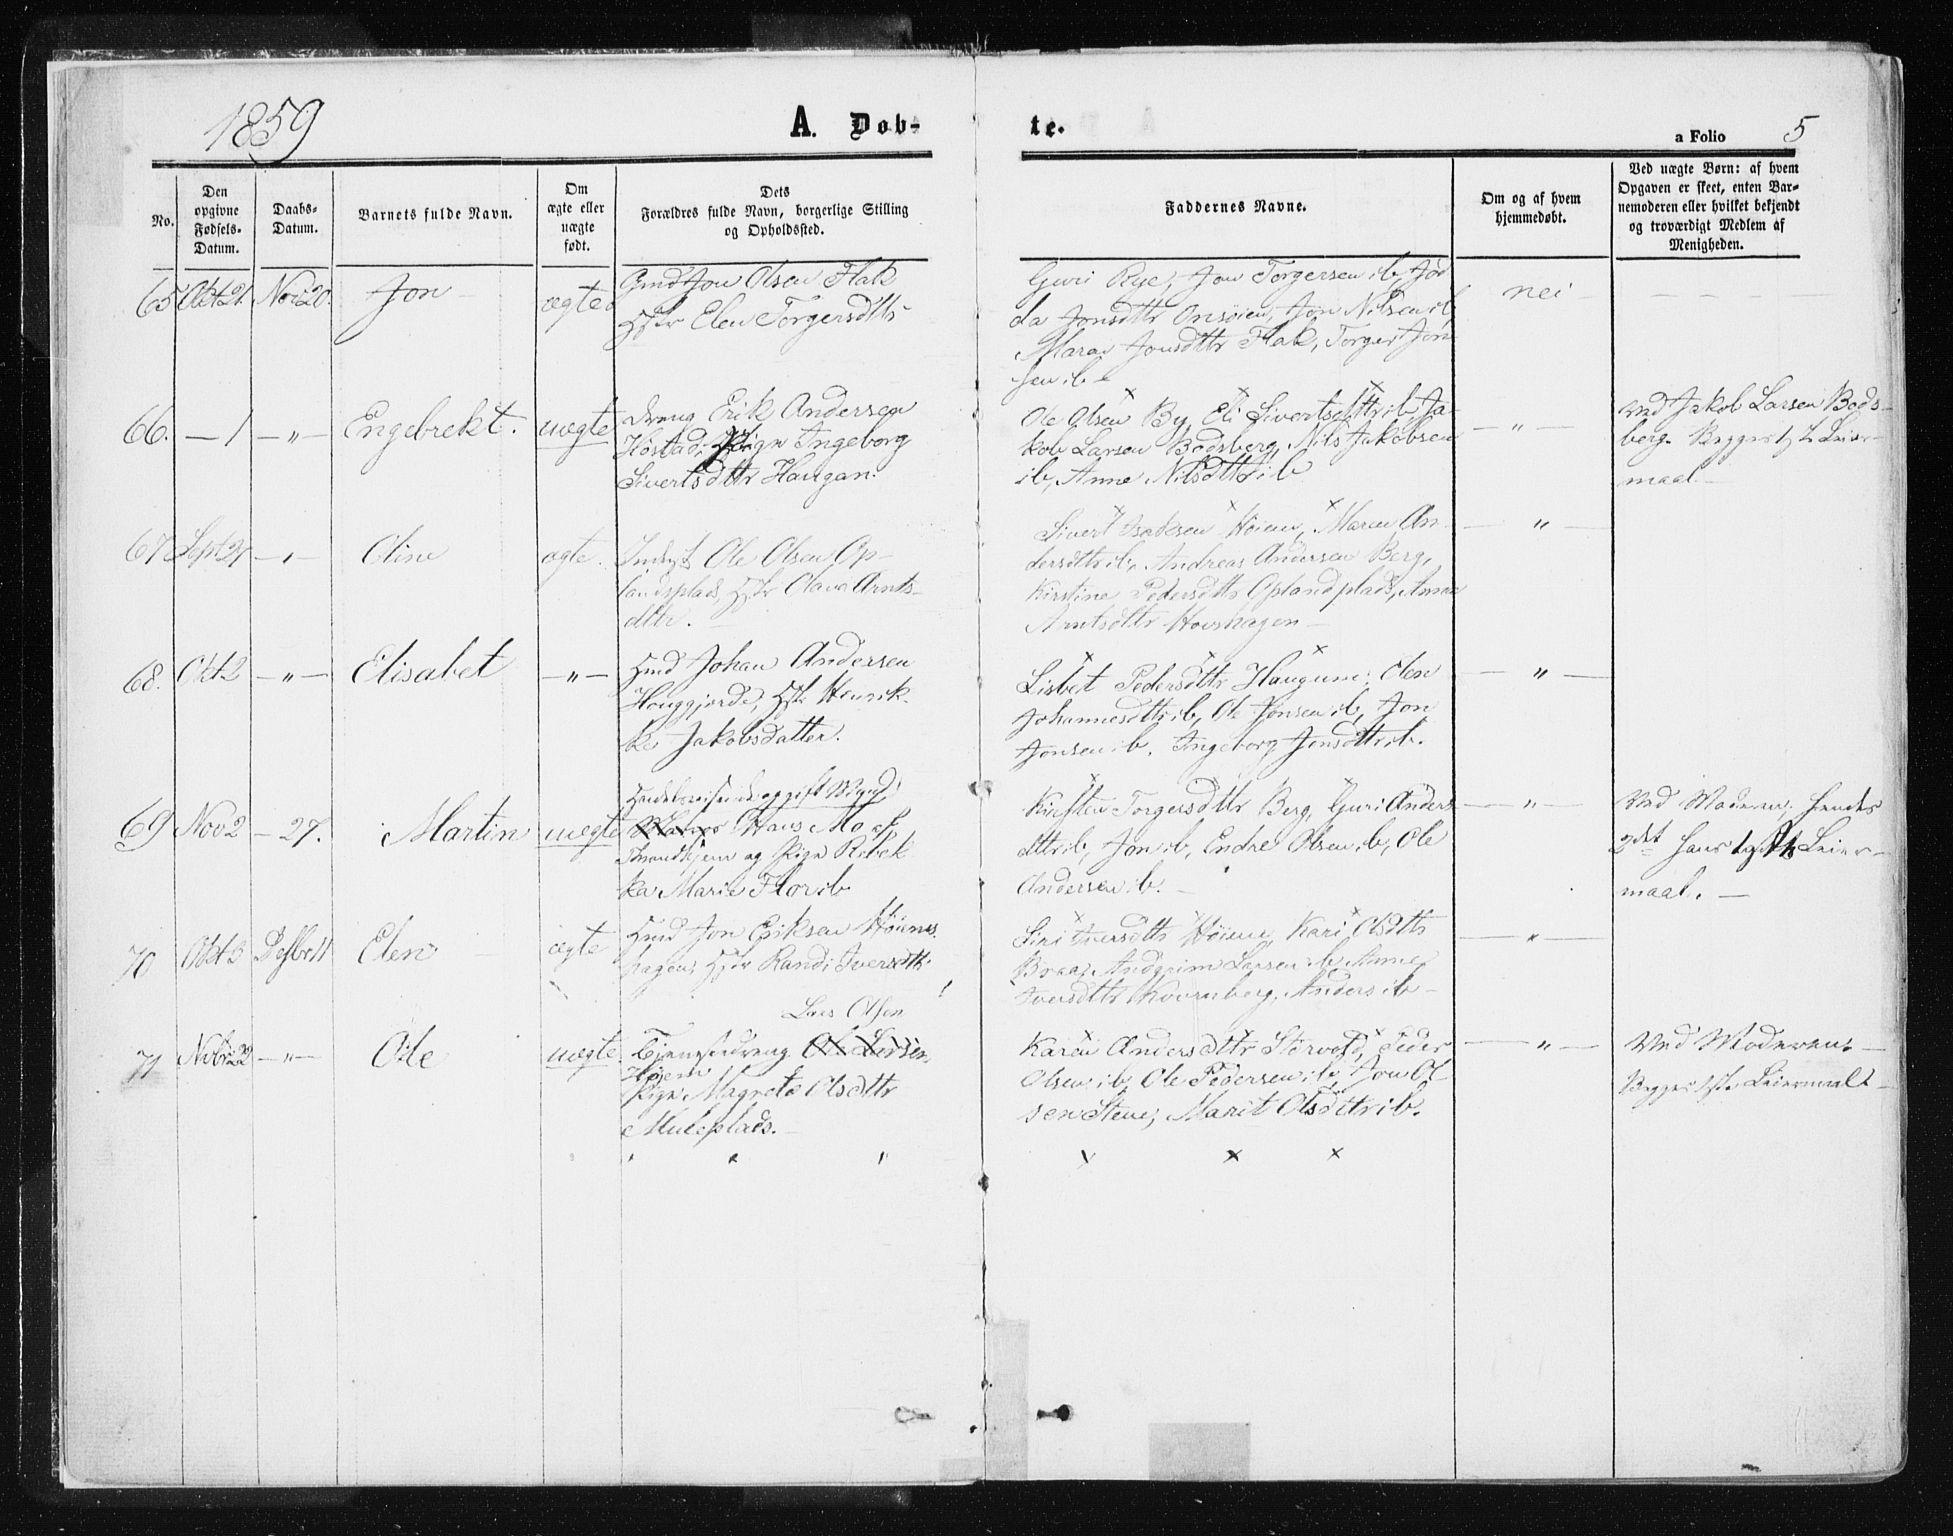 1859
A. Døb-
te.
a Folio 5
No.
Den
opgivne
Fødsels-
Datum.
Daabs-
Datum.
Barnets fulde Navn.
Om
ægte eller
uægte
født.
Dets
Forældres fulde Navn, borgerlige Stilling
og Opholdssted.
Faddernes Navne.
Om og af hvem
hjemmedøbt.
Ved uægte Børn: af hvem
Opgaven er skeet, enten Bar-
nemoderen eller hvilket bekjendt
og troværdigt Medlem af
Menigheden.
65 Okt 21. Nov 20. Jon ægte
Gmd Jon Olsen Flak
Hstr Elen Torgersdttr
Guri Rye, Jon Torgersen ib,
da Jonsdttr Onsøien, Jon Nilsen ib,
Marit Jonsdttr Flak, Torger Jon-
sen ib
nei
66. — 1 — " — Engebrekt. uægte
Dreng Erik Andersen
Kostad, Pige Ingeborg
Sivertsdttr Haugan.
Ole Olsen By, Eli Sivertsdttr ib, Ja-
kob Larsen Bodsberg, Nils Jakobsen
ib, Anne Nilsdttr ib
— " —
ved Jakob Larsen Bods-
berg. Begges 1ste Leier-
maal. —
67 Sept 27 — " — Oline ægte.
Indst Ole Olsen Op-
landsplads, Hstr Olava Arnts-
dttr. —
Sivert Isaksen Høiem, Maren An-
dersdttr ib, Andreas Andersen Berg,
Kirstine Pedersdttr Oplandplads, Anne
Arntsdttr Hovshagen —
— " —
68. Okt 2 — " — Elisabet — " —
Hmd Johan Andersen
Houggjerde, Hstr Henrik-
ke Jakobsdatter.
Lisbet Pedersdttr Haugum, Elen
Johannesdttr ib, Ole Jonsen ib, Jon
Jonsen ib. Ingeborg Jonsdttr ib.
— " —
69 Nov 2 — 27. Martin uægte
Hans Mo af
Throndhjem og Pige Rebek
ka Marie Flor ib
Kirsten Torgersdttr Berg, Guri Anders
dttr ib, Jon ib, Endre Olsen ib, Ole
Andersen ib. —
— " —
Ved Moderen. Hendes
2det hans 1ste Leier-
maal. —
70 Okt 3 Desbr 11 Elen ægte
Hmd Jon Eriksen Høiems
hagen, Hstr Randi Iversdttr.
Siri Iversdttr Høiem, Kari Olsdttr
Braa, Andgrim Larsen ib, Anne
Iversdttr Kvernberg, Anders ib —
— " —
Lars Olsen
71 Novbr 22 — " — Ole uægte.
Tjenestedreng Ole Larsen,
Høiem
Pige Magrete Olsdttr
Muleplads. —
Karen Andersdttr Storvold, Peder
Olsen ib, Ole Pedersen ib, Jon Ol-
sen Stene, Marit Olsdttr ib.
— " —
Ved Moderen. —
Begges 1ste Leiermaal —